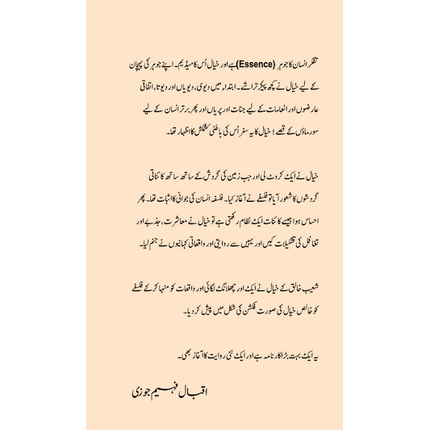 تفکر انسان کا جوہر (Essence) ہے اور خیال اُس کا میڈیم۔ اپنے جوہر کی پہچان
کے لیے خیال نے کچھ پیکر تراشے۔ ابتدا میں دیوی، دیویاں اور دیوتا، اتفاقی
عارضوں اور انعامات کے لیے جنات اور پریاں اور پھر برتر انسان کے لیے
سورماؤں کے قصے! خیال کا یہ سفر اُس کی باطنی کشمکش کا اظہار تھا۔
خیال نے ایک کروٹ لی اور جب زمین کی گردش کے ساتھ ساتھ کائناتی
گردشوں کا شعور آیا تو فلسفے نے آغاز کیا۔ فلسفہ انسان کی جوانی کا اثبات تھا۔ پھر
احساس ہوا جیسے کائنات ایک نظام رکھتی ہے تو خیال نے معاشرت، جذبے اور
کی تشکیلات کیں اور یہیں سے روایتی اور واقعاتی کہانیوں نے جنم لیا۔
شعیب خالق کے خیال نے ایک اور چھلانگ لگائی اور واقعات کو منہا کر کے فلسفے
کو خالص خیال کی صورت فکشن کی شکل میں پیش کر دیا۔
یہ ایک بہت بڑا کارنامہ ہے اور ایک نئی روایت کا آغاز بھی۔
اقبال فہیم جوزی